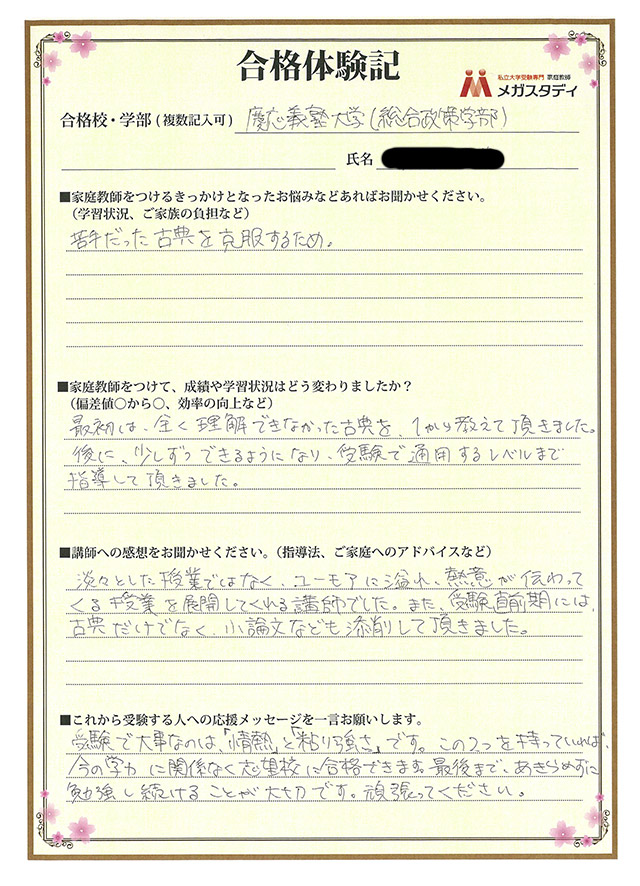 合格体験記
私立大学受験専門 家庭教師
メガスタディ
合格校・学部(複数記入可) 慶応義塾大学(総合政策学部)
氏名
■家庭教師をつけるきっかけとなったお悩みなどあればお聞かせください。
(学習状況、ご家族の負担など)
苦手だった古典を克服するため。
■家庭教師をつけて、成績や学習状況はどう変わりましたか?
(偏差値○から○、効率の向上など)
最初は、全く理解できなかった古典を、1から教えて頂きました。
後に、少しずつできるようになり、受験で通用するレベルまで
指導して頂きました。
■講師への感想をお聞かせください。(指導法、ご家庭へのアドバイスなど)
淡々とした授業ではなく、ユーモアに溢れ、熱意が伝わって
くる授業を展開してくれる講師でした。また、受験直前期には、
古典だけでなく、小論文なども添削して頂きました。
■これから受験する人への応援メッセージを一言お願いします。
受験で大事なのは、「情熱」と「粘り強さ」です。この2つを持っていれば、
今の学力に関係なく志望校に合格できます。最後まで、あきらめずに
勉強し続けることが大切です。頑張ってください。